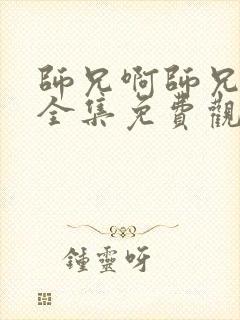 師兄啊師兄
全集免費觀
鍾靈呀